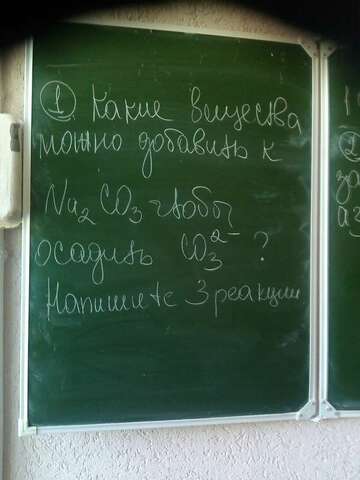 ① Какие вещества
можно добавить к
Na₂CO₃ чтобы
осадить CO₃²⁻ ?
Напишите 3 реакции
1
за
аз